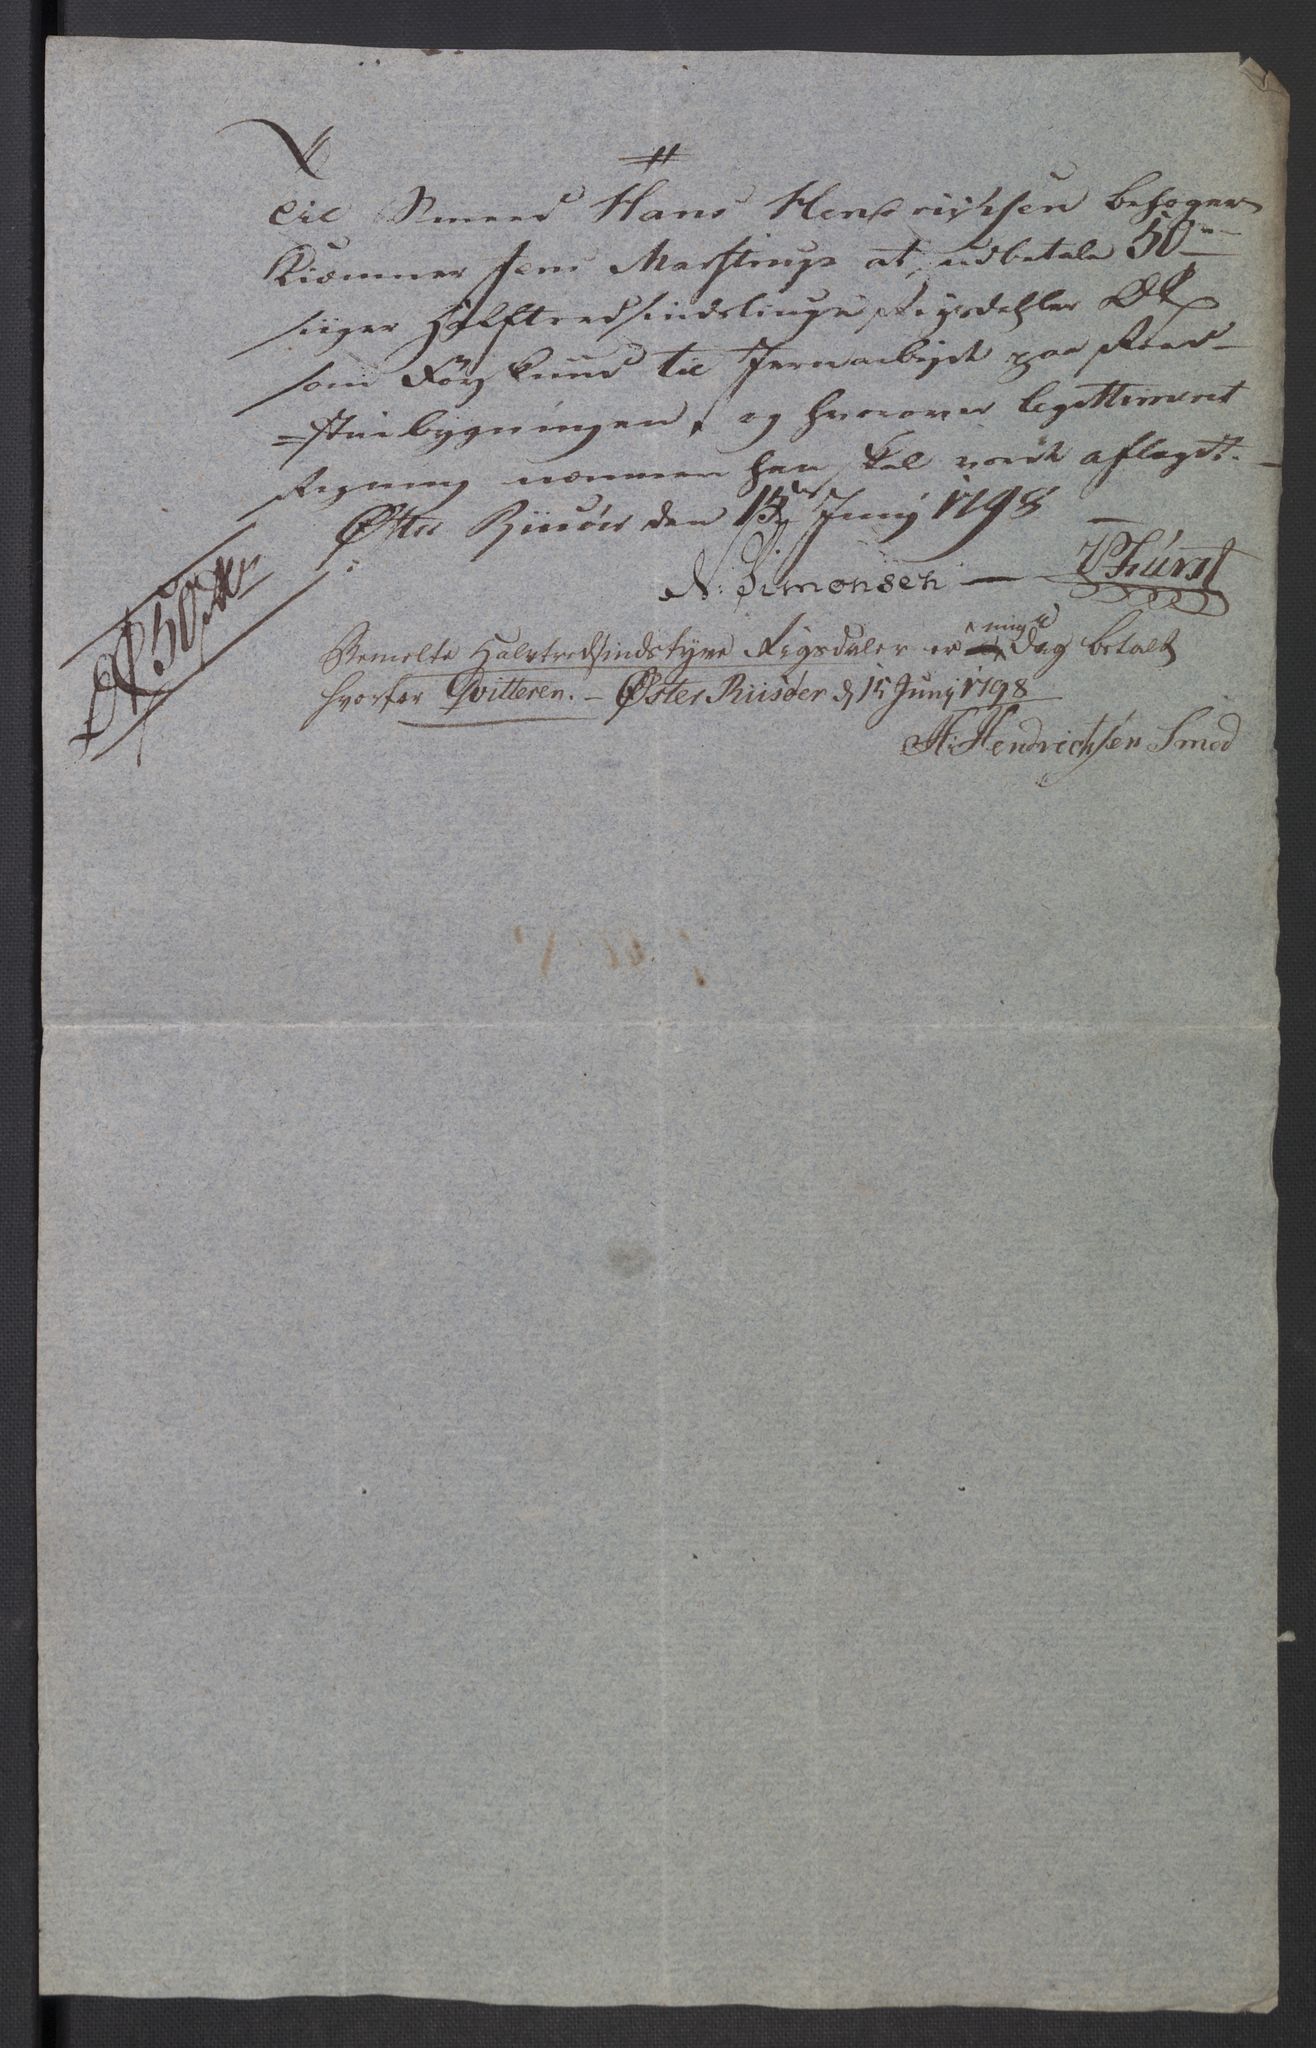 Til Smeed Hans Hendrichsen behager
Kiæmner Jens Marstrup at udbetale 50
siiger Halftredsindstiuge Rigsdahler
som Forskud til Jernarbejde paa Raad-
=stuebygningen, og hvorover legitimeret
Regning næmmere han skal vorde aflagt. -
Øster Riisøer den 15de Junij 1798
N. Simonsen - Fürst
50
Bemelte Halvtredsindstyve Rigsdaler er mig i Dag betalt
hvorfor Qvitteren. - Øster Riisøer d 15 Junij 1798
H: Hendrichsen Smed